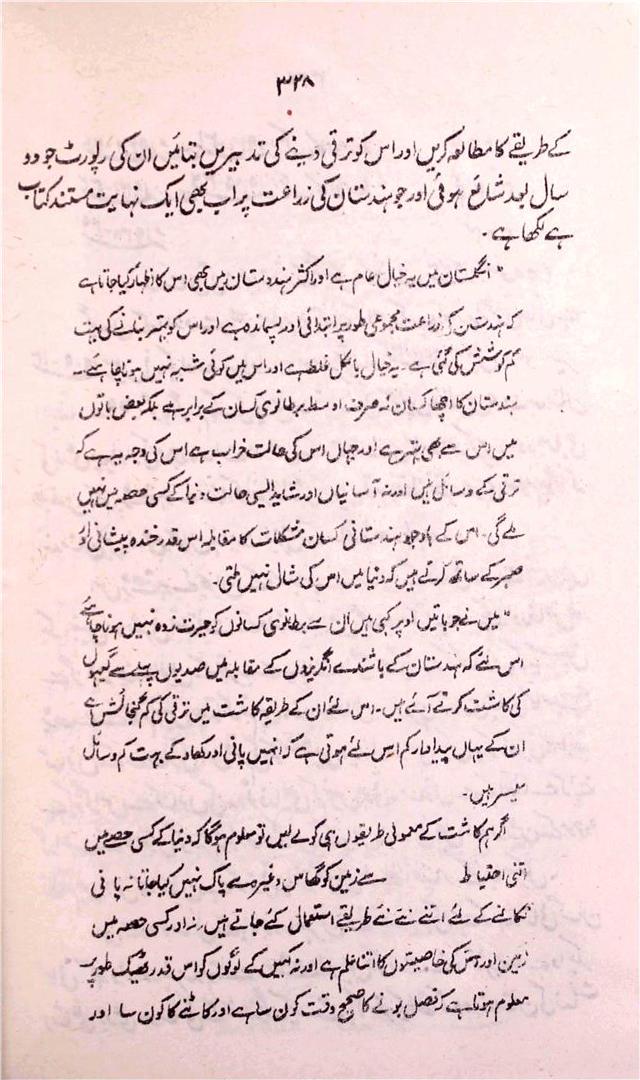 ۳۲۸
کے طریقے کا مطالعہ کریں اور اس کو ترقی دینے کی تدبیریں بتائیں ان کی رپورٹ جو دو
سال بعد شائع ہوئی اور جو ہندستان کی زراعت پر اب بھی ایک نہایت مستند کتاب
ہے لکھا ہے۔
"انگلستان میں یہ خیال عام ہے اور اکثر ہندوستان میں بھی اس کا اظہار کیا جاتا ہے
کہ ہندستان کی زراعت مجموعی طور پر ابتدائی اور پسماندہ ہے اور اس کو بہتر بنانے کی بہت
کم کوشش کی گئی ہے۔ یہ خیال بالکل غلط ہے اور اس میں کوئی شبہ نہیں ہونا چاہئے۔
ہندستان کا اچھا کسان نہ صرف اوسط برطانوی کسان کے برابر ہے بلکہ بعض باتوں
میں اس سے بھی بہتر ہے اور جہاں اس کی حالت خراب ہے اس کی وجہ یہ ہے کہ
ترقی کے وسائل ہیں اور نہ آسانیاں اور شاید ایسی حالت دنیا کے کسی حصہ میں نہیں
ملے گی۔ اس کے باوجود ہندستانی کسان مشکلات کا مقابلہ اس قدر خندہ پیشانی اور
صبر کے ساتھ کرتے ہیں کہ دنیا میں اس کی مثال نہیں ملتی۔
"میں نے جو باتیں اوپر کہی ہیں ان سے برطانوی کسانوں کو حیرت زدہ نہیں ہونا چاہئے
اس لئے کہ ہندستان کے باشندے انگریزوں کے مقابلہ میں صدیوں پہلے سے گیہوں
کی کاشت کرتے آئے ہیں۔ اس لئے ان کے طریقہ کاشت میں ترقی کی کم گنجائش ہے
ان کے یہاں پیداوار کم اس لئے ہوتی ہے کہ انہیں پانی اور کھاد کے بہت کم وسائل
میسر ہیں۔
اگر ہم کاشت کے معمولی طریقوں ہی کو لے لیں تو معلوم ہوگا کہ دنیا کے کسی حصے میں
اتنی احتیاط سے زمین کو گھاس وغیرہ سے پاک نہیں کیا جاتا نہ پانی
نکالنے کے لئے اتنے نئے نئے طریقے استعمال کئے جاتے ہیں۔ نہ اور کسی حصہ میں
زمین اور اس کی خاصیتوں کا اتنا علم ہے اور نہ کہیں کے لوگوں کو اس قدر ٹھیک طور پر
معلوم ہوتا ہے کہ فصل بونے کا صحیح وقت کون سا ہے اور کاٹنے کا کون سا اور